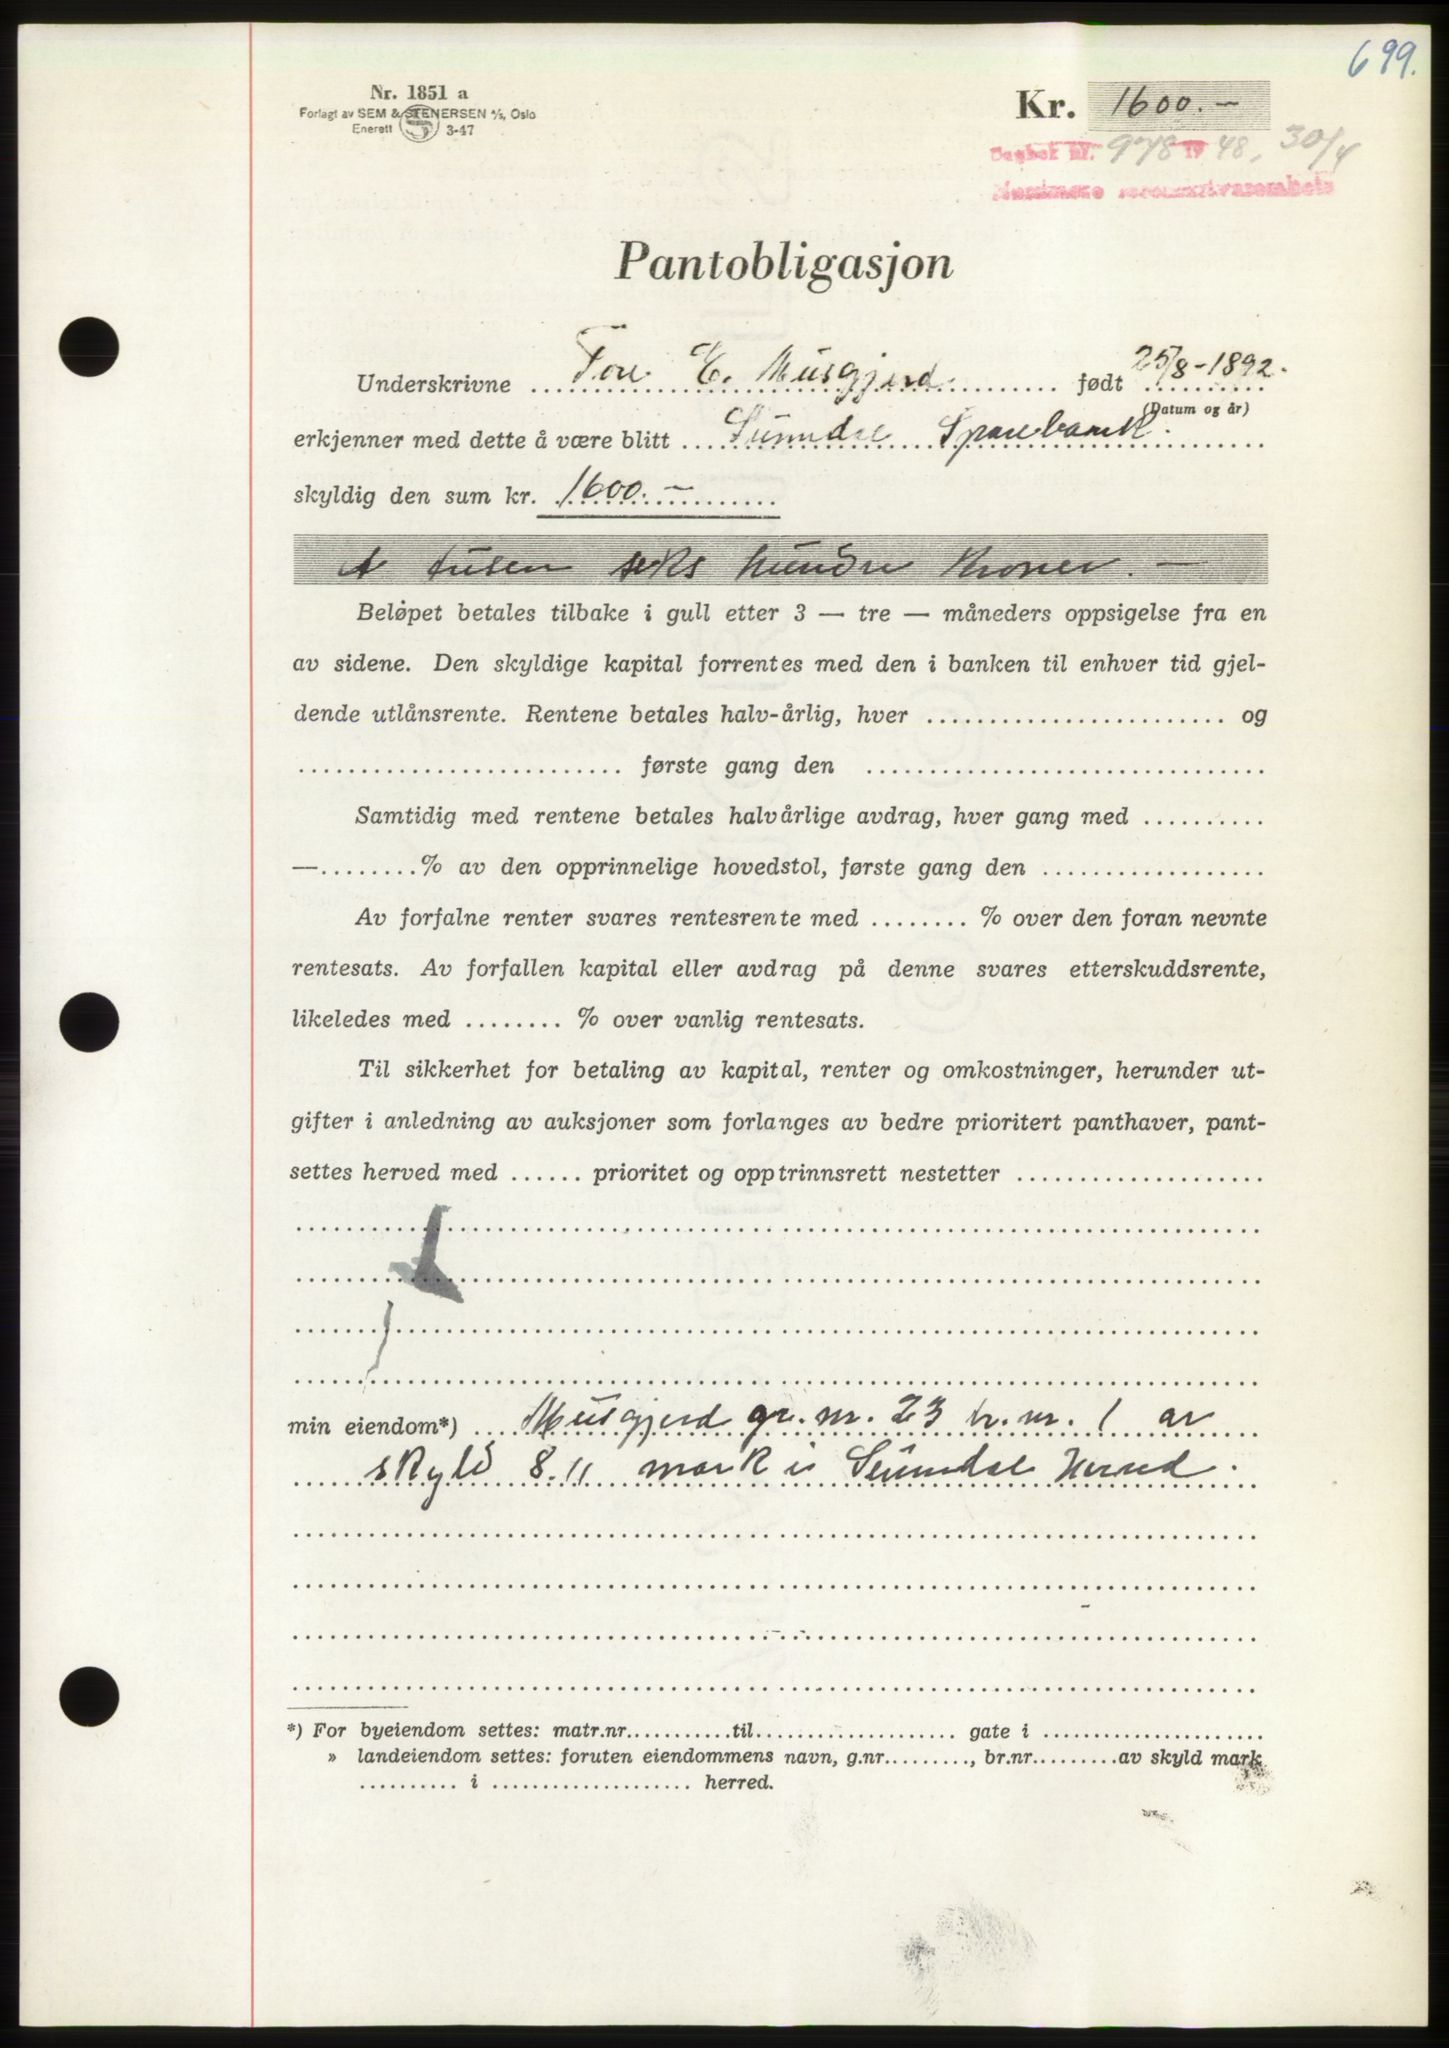 699.
Nr. 1851 a
Forlagt av SEM & STENERSEN A/S, Oslo
Enerett 3-47
Kr. 1600.-
Dagbok nr. 978 19 48, 30/4
Nordmøre sorenskriverembete
Pantobligasjon
Underskrivne Tore E. Musgjerd født 25/8-1892.
(Datum og år)
erkjenner med dette å være blitt Sunndal Sparebank.
skyldig den sum kr. 1600.-
tusen seks hundre kroner.-
Beløpet betales tilbake i gull etter 3 — tre — måneders oppsigelse fra en
av sidene. Den skyldige kapital forrentes med den i banken til enhver tid gjel-
dende utlånsrente. Rentene betales halv-årlig, hver ........................ og
.......................... første gang den ................................
Samtidig med rentene betales halvårlige avdrag, hver gang med ..........
—........% av den opprinnelige hovedstol, første gang den ..................
Av forfalne renter svares rentesrente med ........ % over den foran nevnte
rentesats. Av forfallen kapital eller avdrag på denne svares etterskuddsrente,
likeledes med ........ % over vanlig rentesats.
Til sikkerhet for betaling av kapital, renter og omkostninger, herunder ut-
gifter i anledning av auksjoner som forlanges av bedre prioritert panthaver, pant-
settes herved med ...... prioritet og opptrinnsrett nestetter ....................
min eiendom*) Musgjerd gr.nr. 23 br.nr. 1 av
skyld 8.11 mark i Sunndal herred.
*) For byeiendom settes: matr.nr...........til.................... gate i ......................
» landeiendom settes: foruten eiendommens navn, g.nr........., br.nr.........av skyld mark
.......... i .................... herred.